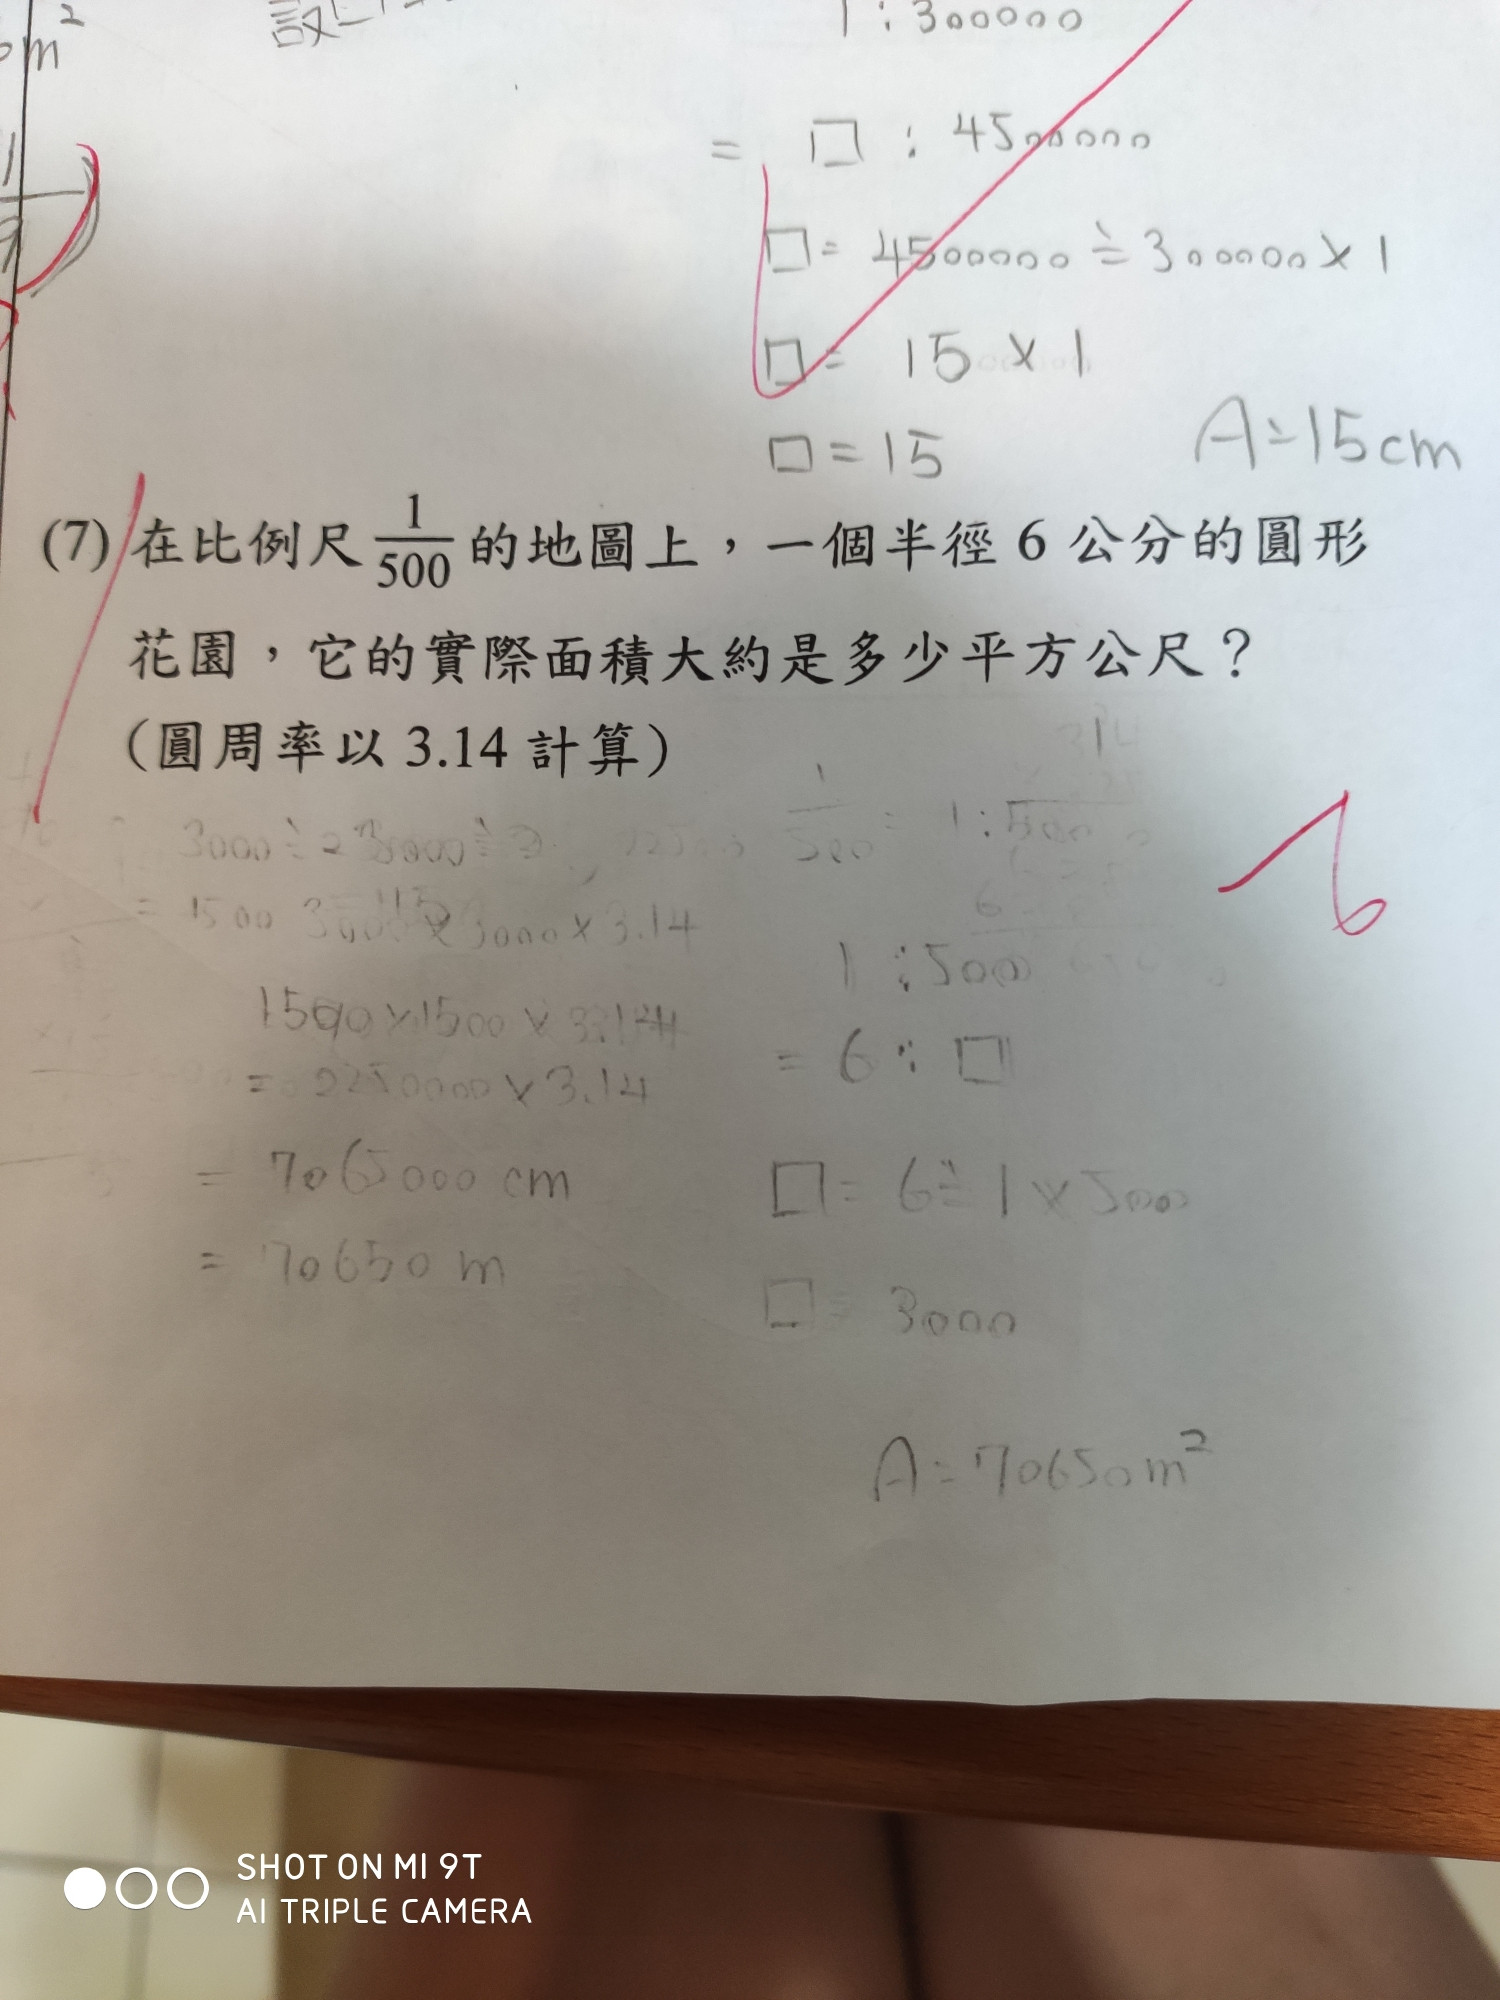 m²
設
1:300000
= □:4500000
1
9
□=4500000÷300000×1
□= 15×1
□=15
A=15cm
(7) 在比例尺 1/500 的地圖上，一個半徑 6 公分的圓形
花園，它的實際面積大約是多少平方公尺？
（圓周率以 3.14 計算）
1/500 = 1:500
= 1500
3000×3000×3.14
1:500
1500×1500×3.14
= 6:□
= 2250000×3.14
= 7065000 cm
□=6÷1×500
= 70650 m
□=3000
A=70650m²
SHOT ON MI 9T
AI TRIPLE CAMERA